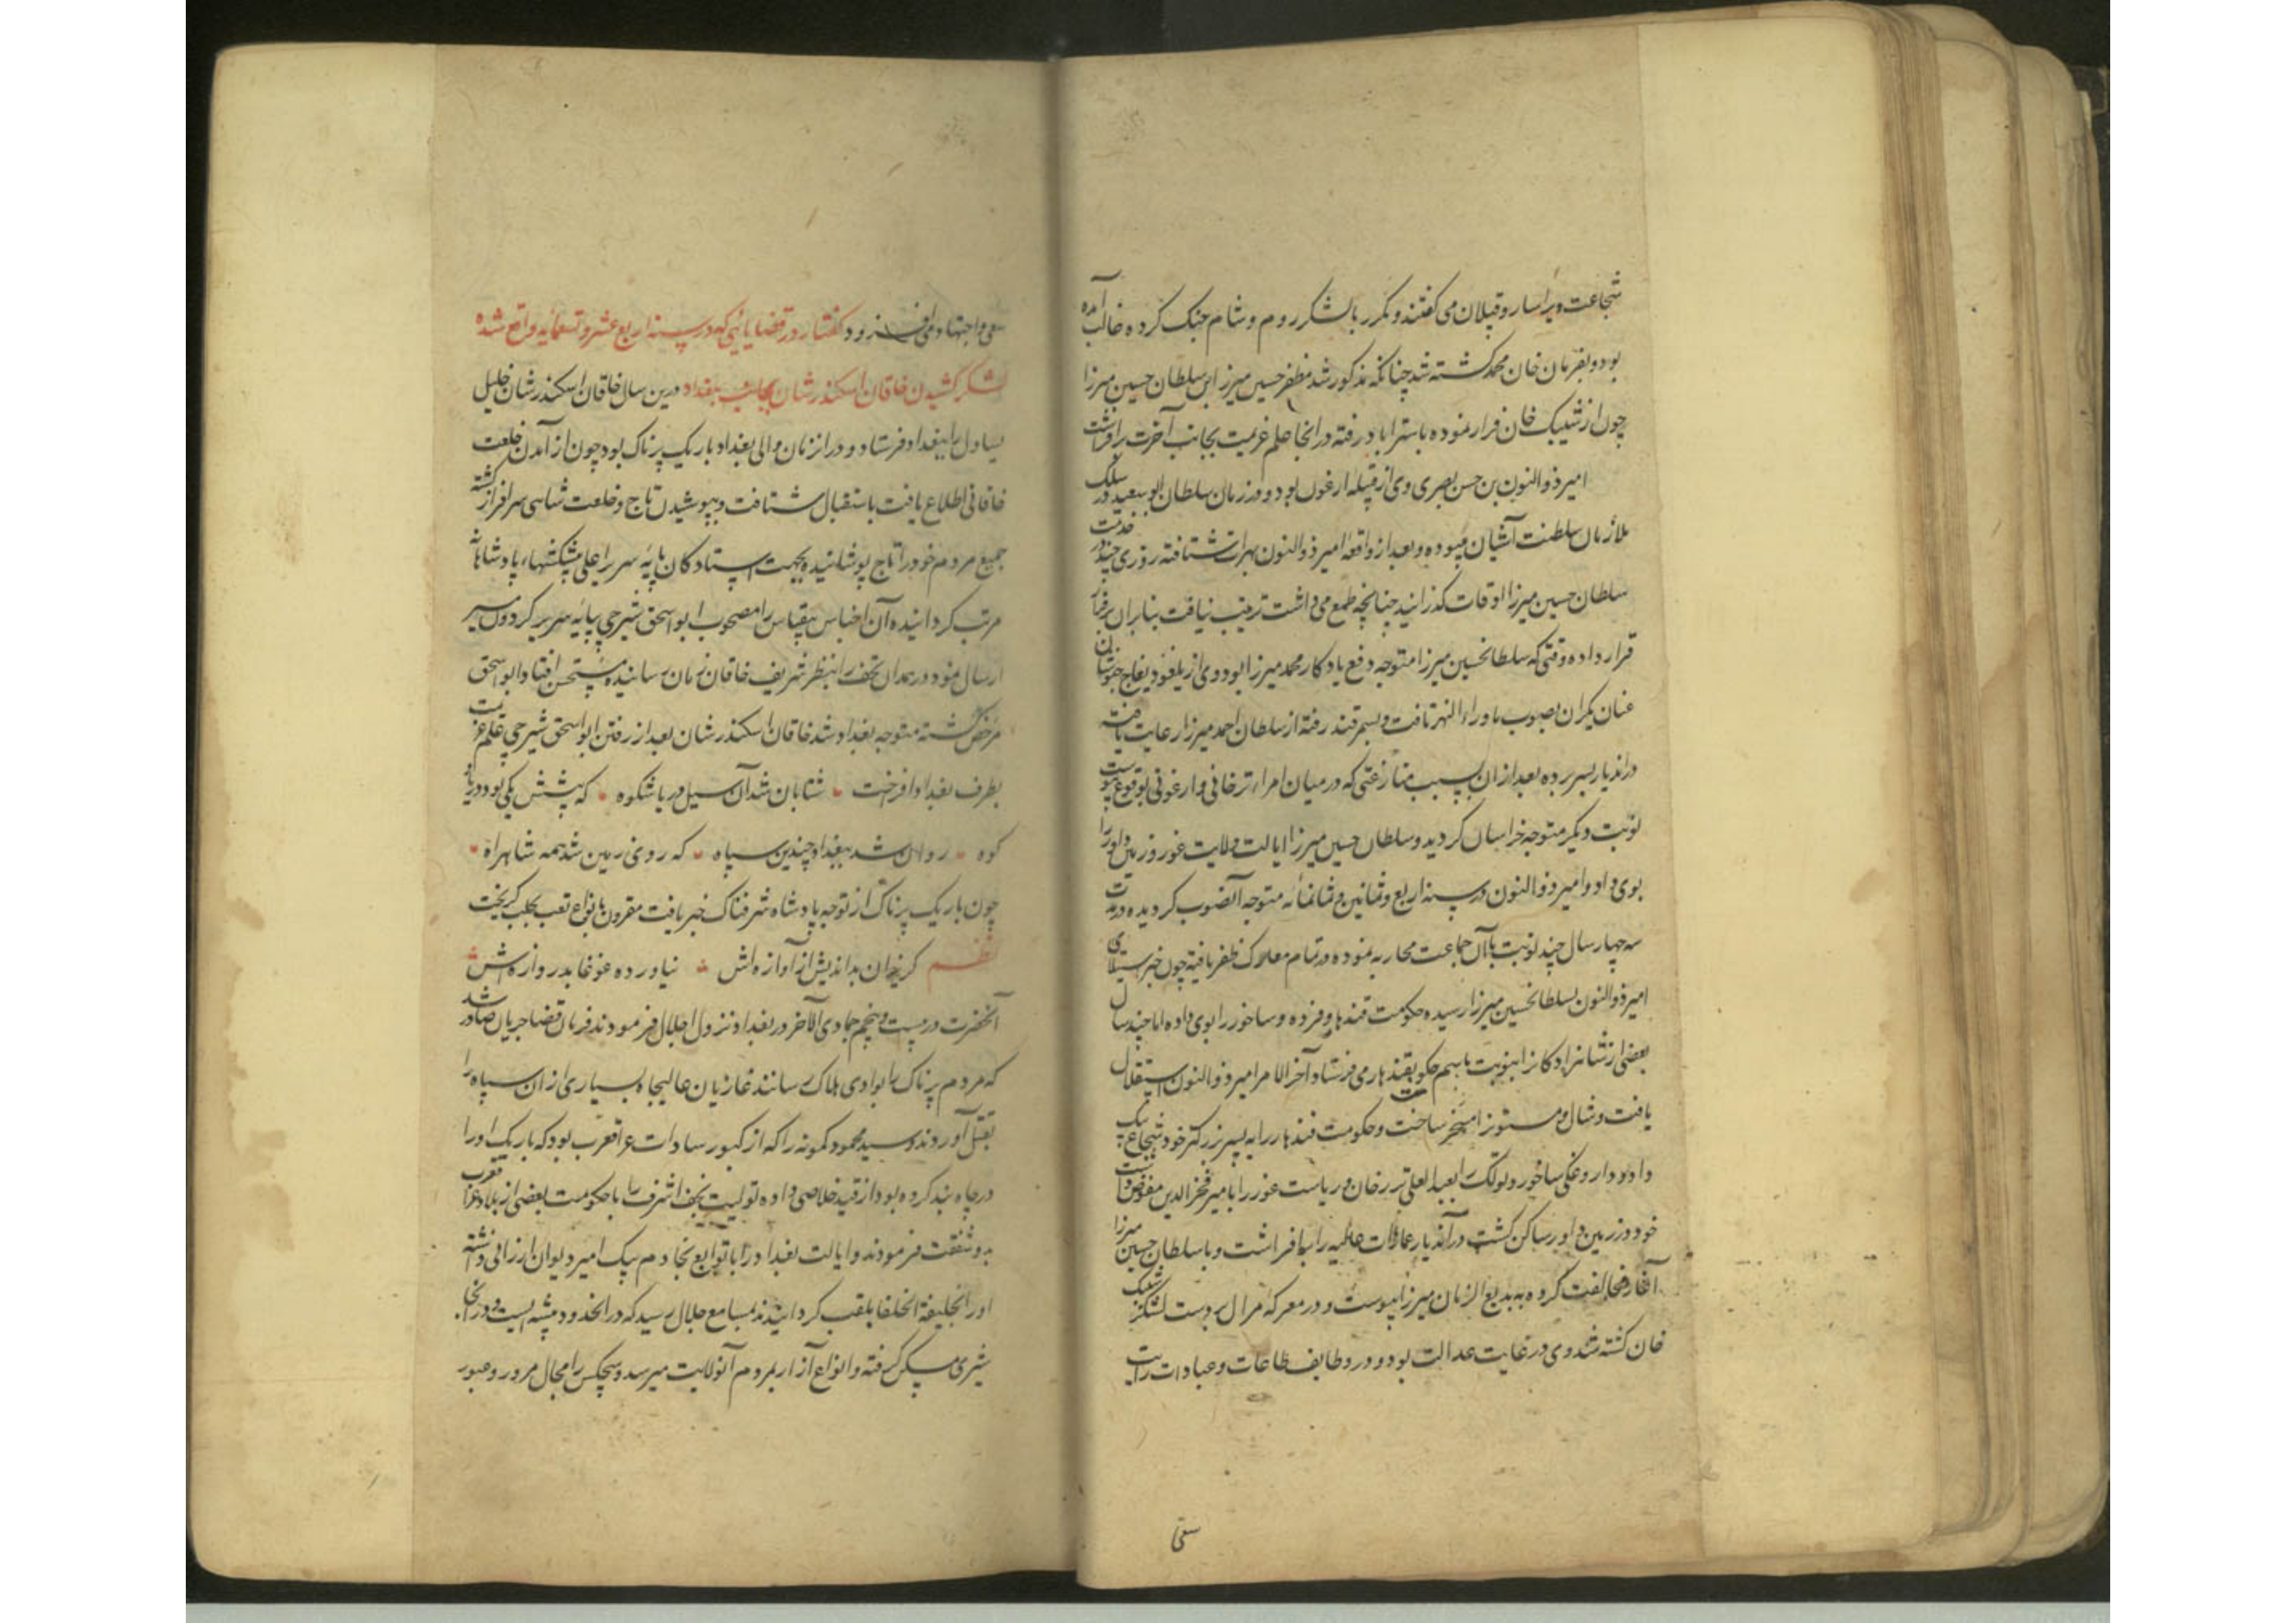 شجاعت ویرا سارو قپلان می گفتند و مکرر با لشکر روم و شام جنک کرده غالب آمده
بود و بفرمان خان محمد کشته شد چنانکه مذکور شد مظفر حسین میرزا ابن سلطان حسین میرزا
چون از شیبک خان فرار نموده باستراباد رفته در انجا علم عزیمت بجانب آخرت برافراشت
امیر ذوالنون بن حسن بصری وی از قبیله ارغون بود و در زمان سلطان ابوسعید در سلک
ملازمان سلطنت آشیان میبوده و بعد از واقعه امیر ذوالنون بهرات شتافته روزی چند در خدمت
سلطان حسین میرزا اوقات گذرانید چنانچه طمع می داشت تربیت نیافت بنابران برفتن
قرار داده وقتی که سلطانحسین میرزا متوجه دفع یادکار محمد میرزا بود وی از
عنان یکران بصوب ماوراء النهر تافت و بسمرقند رفته از سلطان احمد میرزا رعایت یافته
در اندیار بسر برده بعد از ان بسبب منازعتی که در میان امراء ترخانی و ارغونی بوقوع پیوست
نوبت دیکر متوجه خراسان کردید و سلطان حسین میرزا ایالت ولایت غور و زمین داور را
بوی داد و امیر ذوالنون در سنه اربع و ثمانین و ثمانمائه متوجه آنصوب کردیده در مدت
سه چهار سال چند نوبت با آن جماعت محاربه نموده در تمام معارک ظفر یافته چون خبر استیلای
امیر ذوالنون بسلطانحسین میرزا رسیده حکومت قندهار و فره و ساخر را بوی داده اما چند سال
بعضی از شاهزادکان را بنوبت باسم حکومت بقندهار می فرستاد آخر الامر امیر ذوالنون استقلال
یافت و شال و مستونک را مسخر ساخت و حکومت قندهار را به پسر بزرکتر خود شجاع بیک
داد و داروغکی ساخر و تولک را بعبدالعلی ترخان و ریاست غور را بامیر فخرالدین مفوض داشت
خود در زمین داور ساکن کشت در آندیار عمارات عالیه را برافراشت و با سلطان حسین میرزا
آغاز مخالفت کرده به بدیع الزمان میرزا پیوست و در معرکه مرال بدست لشکر شیبک
خان کشته شد وی در غایت عدالت بود و در وظایف طاعات و عبادات رایت
سعی
سعی و اجتهاد می افزود کفتار در قضایائی که در سنه اربع عشر و تسعمایه واقع شده
لشکر کشیدن خاقان اسکندر شان بجانب بغداد درین سال خاقان اسکندر شان خلیل
یساول را ببغداد فرستاد و در انزمان والی بغداد باریک پرناک بود چون از آمدن خلعت
خاقانی اطلاع یافت باستقبال شتافت و بپوشیدن تاج و خلعت شاهی سرافراز کشته
جمیع مردم خود را تاج پوشانیده بجهت ایستادکان پایه سریر اعلی پیشکشهاء پادشاهانه
مرتب کردانیده آن اجناس بیقیاس را مصحوب ابو اسحق شیرجی بپایه سریر کردون مسیر
ارسال نمود در همدان تحف را بنظر شریف خاقان زمان رسانیده مستحسن افتاد و ابو اسحق
مرخص کشته متوجه بغداد شد خاقان اسکندر شان بعد از رفتن ابو اسحق شیرجی علم عزیمت
بطرف بغداد افراخت شتابان شد آن سیل دریا شکوه که پیشش یکی بود دریا و
کوه روان شد ببغداد چندین سپاه که روی زمین شد همه شاهراه
چون باریک پرناک از توجه پادشاه شرفناک خبر یافت مقرون بانواع تعب بحلب کریخت
نظم کریزان بداندیش از آوازه اش نیاورده غوغا بدروازه اش
آنحضرت در بیست و پنجم جمادی الآخر در بغداد نزول اجلال فرمودند فرمان قضا جریان صادر شد
که مردم پرناک را بوادی هلاک رسانند غازیان عالیجاه بسیاری از ان سپاه را
بقتل آوردند و سید محمود کمونه را که از کبیر سادات عراق عرب بود که باریک او را
در چاه بند کرده بود از قید خلاصی داده تولیت نجف اشرف را با حکومت بعضی از بلاد عراق عرب
بدو شفقت فرمودند و ایالت بغداد را با توابع بخادم بیک امیر دیوان ارزانی داشته
او را بخلیفة الخلفا ملقب کردانیدند بمسامع جلال رسید که در انحدود بیشه ایست و در انجا
شیری مسکن کرفته و انواع آزار بمردم آنولایت میرسد و هیچکس را مجال مرور و عبور